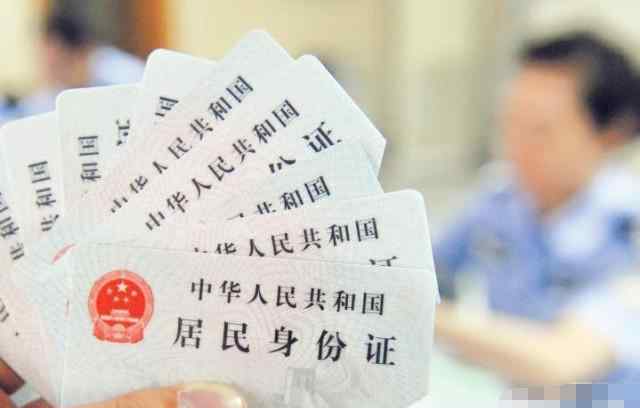 中华人民共和国
居民身份证
中华人民共和国
证
中华人民共和国
份证
中华人民共和国
证
中华人民共和国
共和国
共和国